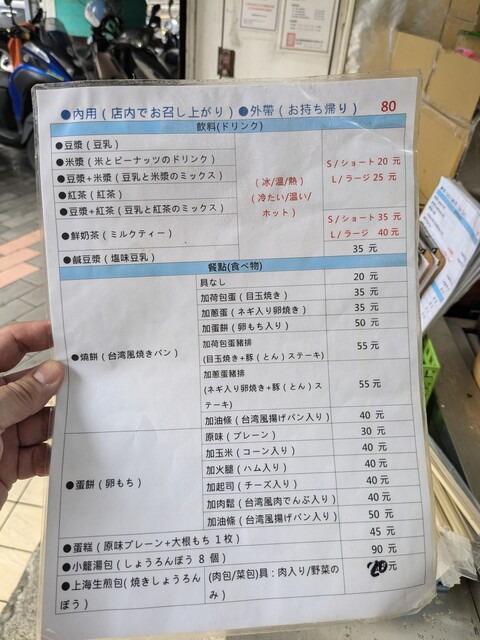 ●內用 ( 店内でお召し上がり ) ●外帶 ( お持ち帰り ) 80
飲料(ドリンク)
●豆漿 ( 豆乳 )
●米漿 ( 米とピーナッツのドリンク )
●豆漿+米漿 ( 豆乳と米漿のミックス )
●紅茶 ( 紅茶 )
●豆漿+紅茶 ( 豆乳と紅茶のミックス )
●鮮奶茶 ( ミルクティー )
●鹹豆漿 ( 塩味豆乳 )
( 冰/溫/熱 )
( 冷たい/温い/
ホット )
S / ショート 20 元
L / ラージ 25 元
S / ショート 35 元
L / ラージ 40 元
35 元
餐點(食べ物)
●燒餅 ( 台湾風焼きパン )
具なし 20 元
加荷包蛋 ( 目玉焼き ) 35 元
加蔥蛋 ( ネギ入り卵焼き ) 35 元
加蛋餅 ( 卵もち入り ) 50 元
加荷包蛋豬排
(目玉焼き+豚 ( とん ) ステーキ) 55 元
加蔥蛋豬排
(ネギ入り卵焼き+豚 ( とん ) ス
テーキ) 55 元
加油條 ( 台湾風揚げパン入り ) 40 元
●蛋餅 ( 卵もち )
原味 ( プレーン ) 30 元
加玉米 ( コーン入り ) 40 元
加火腿 ( ハム入り ) 40 元
加起司 ( チーズ入り ) 40 元
加肉鬆 ( 台湾風肉でんぶ入り ) 40 元
加油條 ( 台湾風揚げパン入り ) 50 元
●蛋糕 ( 原味プレーン+大根もち 1 枚 ) 45 元
●小籠湯包 ( しょうろんぽう 8 個 ) 90 元
●上海生煎包( 焼きしょうろん
ぽう )
(肉包/菜包)具 : 肉入り/野菜の
み ) 20元